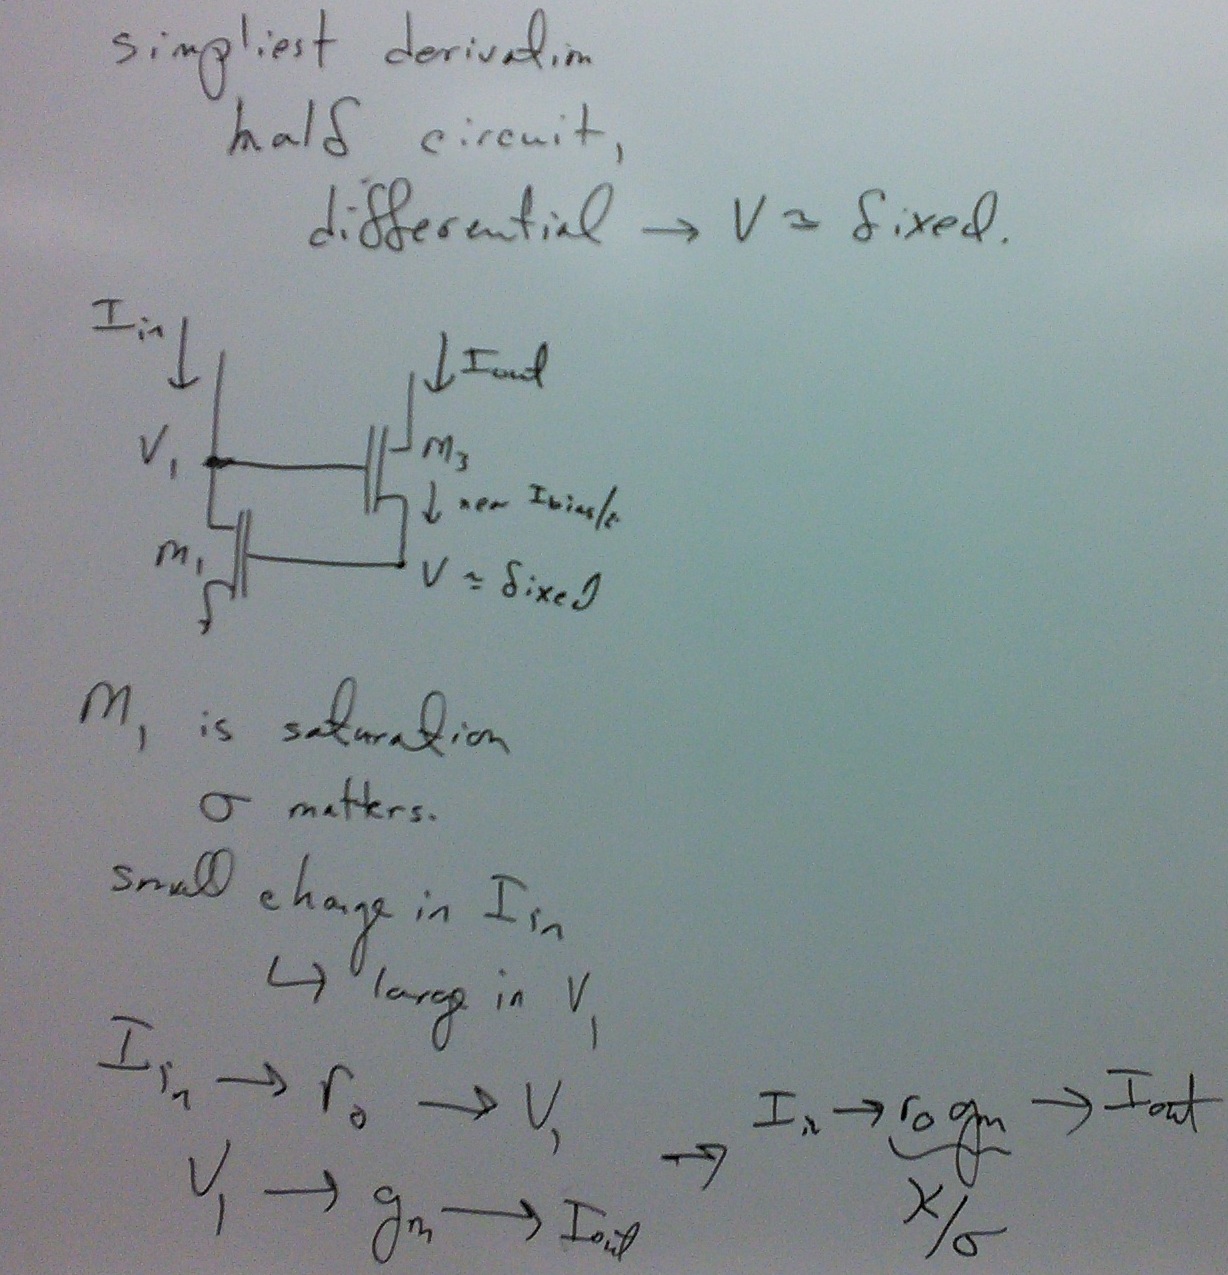 simpliest derivation
half circuit,
differential → V ≃ fixed.
I_in ↓
↓ I_out
V_1
M_3
↓ near I_bias/2
M_1
V ≃ fixed
M_1 is saturation
σ matters.
small change in I_in
↳ large in V_1
I_in → r_o → V_1
V_1 → g_m → I_out
→ I_in → r_o g_m → I_out
X/σ